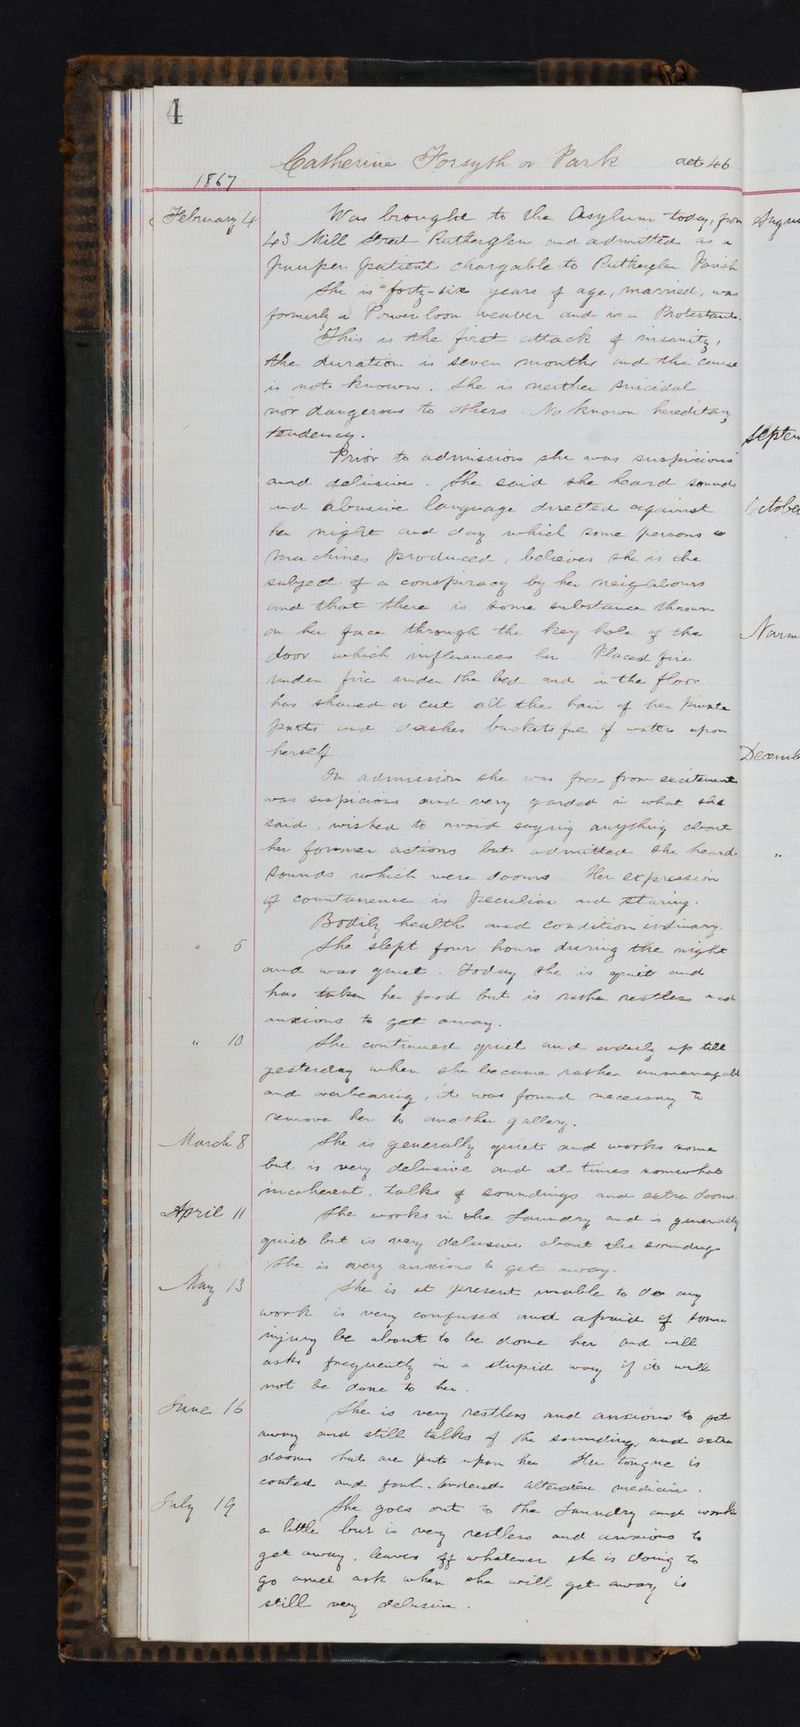 4
Catherine Forsyth or Park aet 46
1867
February 4 Was brought to the Asylum today, from
43 Mill Street Rutherglen and admitted as a
pauper patient chargable to Rutherglen Parish
She is forty-six years of age, married, was
formerly a Power loom weaver and is a Protestant.
This is the first attack of insanity,
the duration is seven months and the cause
is not known. She is neither suicidal
nor dangerous to others. No known hereditary
tendency.
Prior to admission she was suspicious
and delusive. She said she heard sounds
and abusive language directed against
her night and day which some persons or
machines produced, believes she is the
subject of a conspiracy by her neighbours
and that there is some substance thrown
on her face through the key hole of the
door which influences her. Placed fire
under fire under the bed and in the floor
has shaved or cut all the hair of her private
parts and dashes bucketsful of water upon
herself
On admission she was free from excitement
was suspicious and very garded in what she
said, wished to avoid saying anything about
her former actions but admitted she heard
sounds which were dooms. Her expression
of countenance is peculiar and staring.
Bodily health and condition ordinary.
" 5 She slept four hours during the night
and was quiet. Today she is quiet and
has taken her food but is rather restless and
anxious to get away.
" 10 She continued quiet and orderly up till
yesterday when she became rather unmanagable
and overbearing, it was found necessary to
remove her to another gallery.
March 8 She is generally quiet and works some
but is very delusive and at times somewhat
incoherent, talks of soundings and extra dooms.
April 11 She works in the Laundry and is generally
quiet but is very delusive about the soundings
She is very anxious to get away.
May 13 She is at present unable to do any
work is very confused and afraid of some
injury be about to be done her and will
asks frequently in a stupid way if it will
not be done to her.
June 16 She is very restless and anxious to get
away and still talks of the soundings and extra
dooms that are put upon her. Her tongue is
coated and foul. Ordered alterative medicine.
July 19 She goes out to the Laundry and works
a little but is very restless and anxious to
get away. leaves off whatever she is doing to
go and ask when she will get away is
still very delusive.
Augus
Septem
October
Novem
Decemb
"